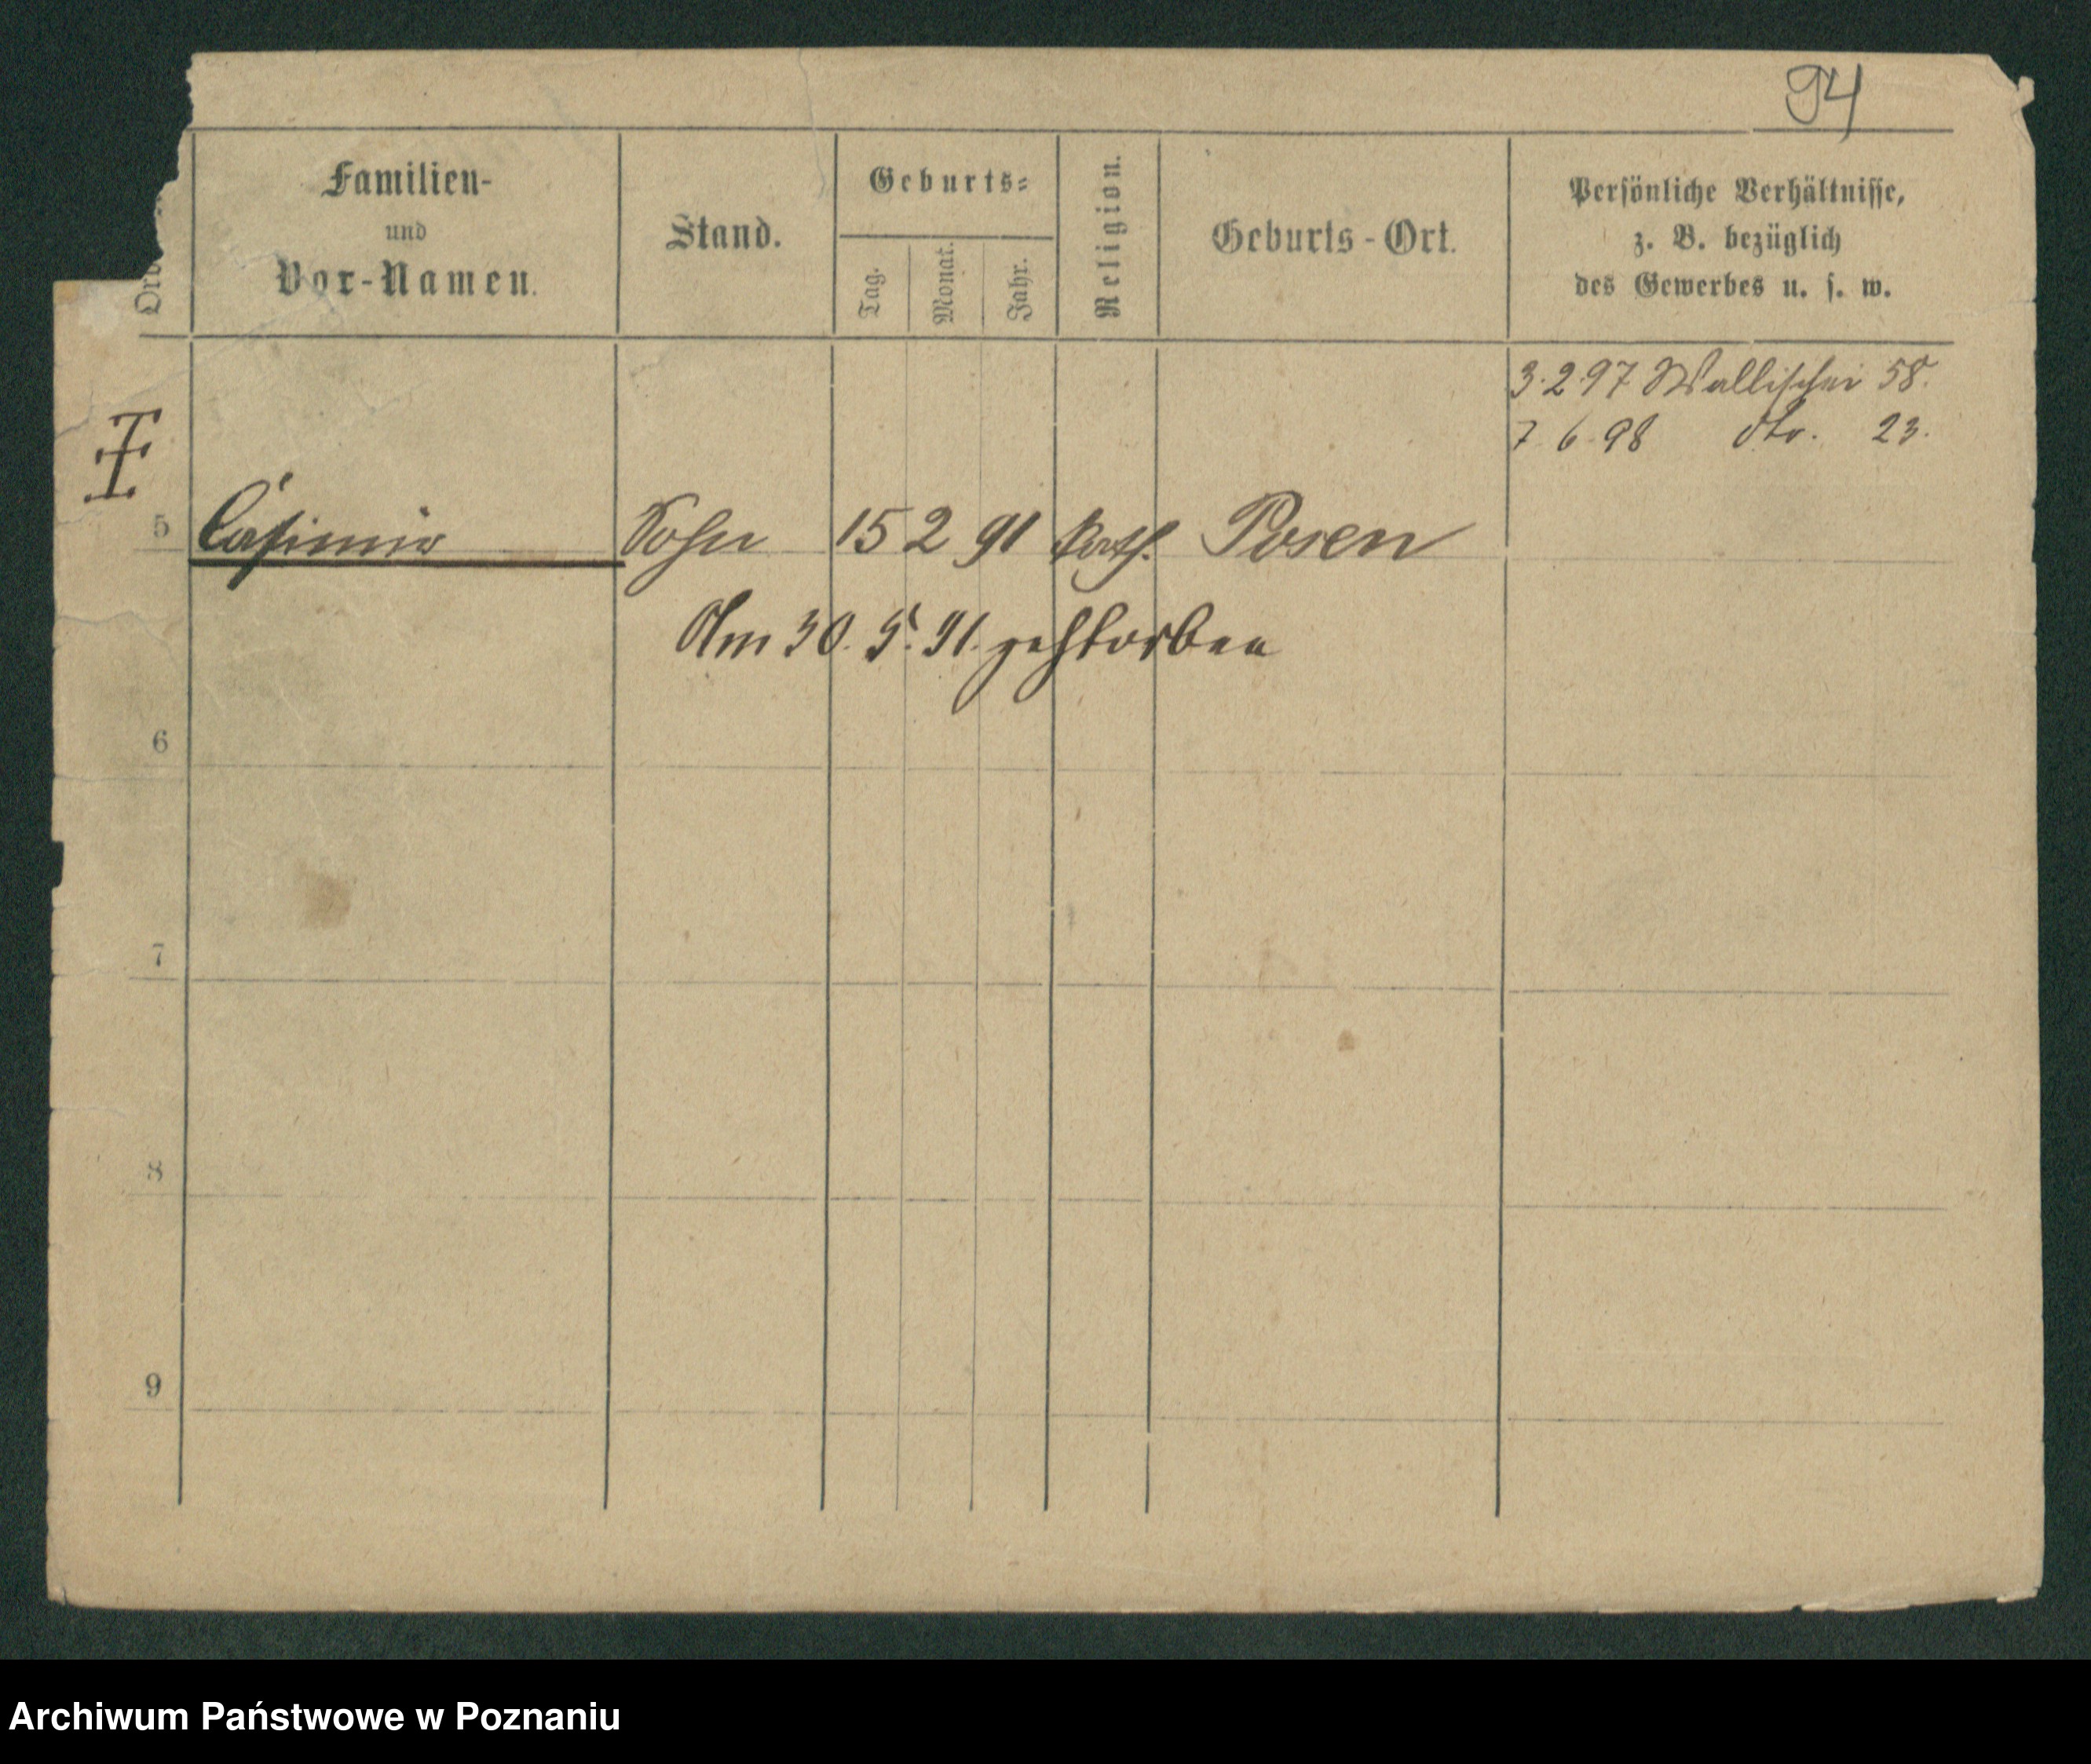 94
Familien-
und
Vor-Namen.
Stand.
Geburts-
Tag.
Monat.
Jahr.
Religion.
Geburts-Ort.
Persönliche Verhältnisse,
z. B. bezüglich
des Gewerbes u. s. w.
3.2.97 Wallischei 58.
7.6.98 dto. 23.
5 Casimir Sohn 15 2 91 kath. Posen
Am 30.5.91. gestorben
6
7
8
9
Archiwum Państwowe w Poznaniu